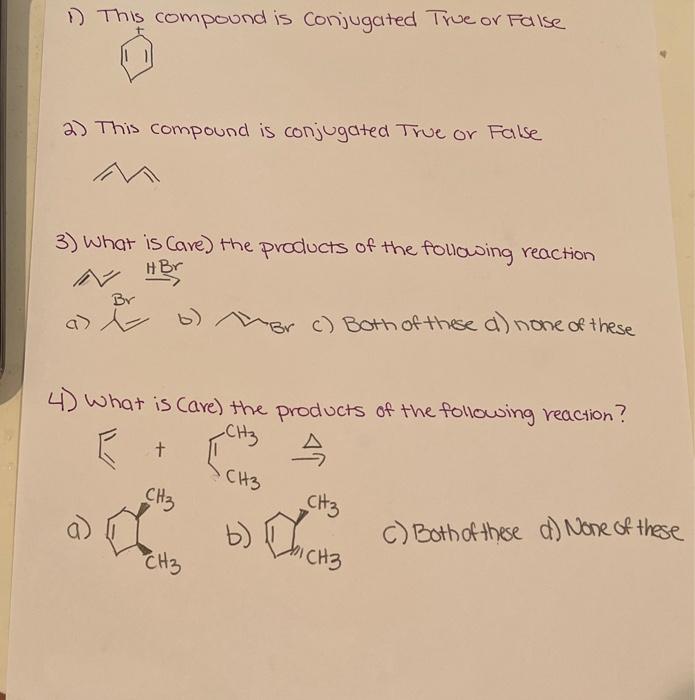 1) This compound is Conjugated True or False
+
2) This compound is conjugated True or False
3) What is (are) the products of the following reaction
HBr
Br
a) b) Br c) Both of these d) none of these
4) What is (are) the products of the following reaction?
+ CH3 Δ
CH3
CH3 CH3
a) b) c) Both of these d) None of these
CH3 CH3